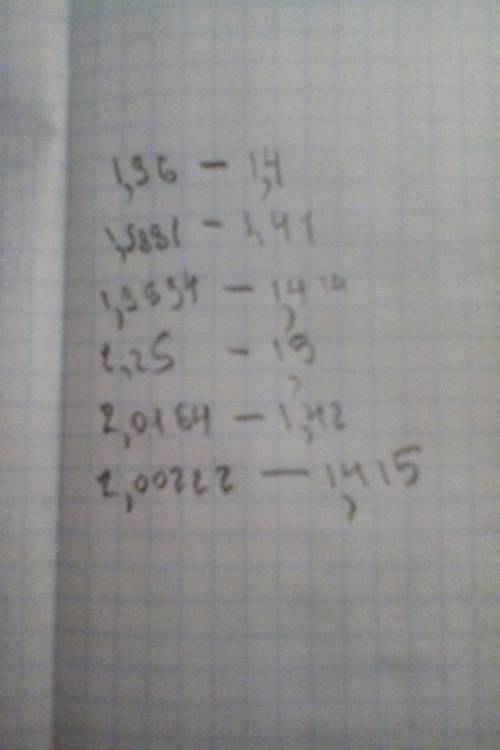 1,96 - 1,4
1,9881 - 1,41
1,9994 - 1,414
2,25 - 1,5
2,0164 - 1,42
2,00222 - 1,415